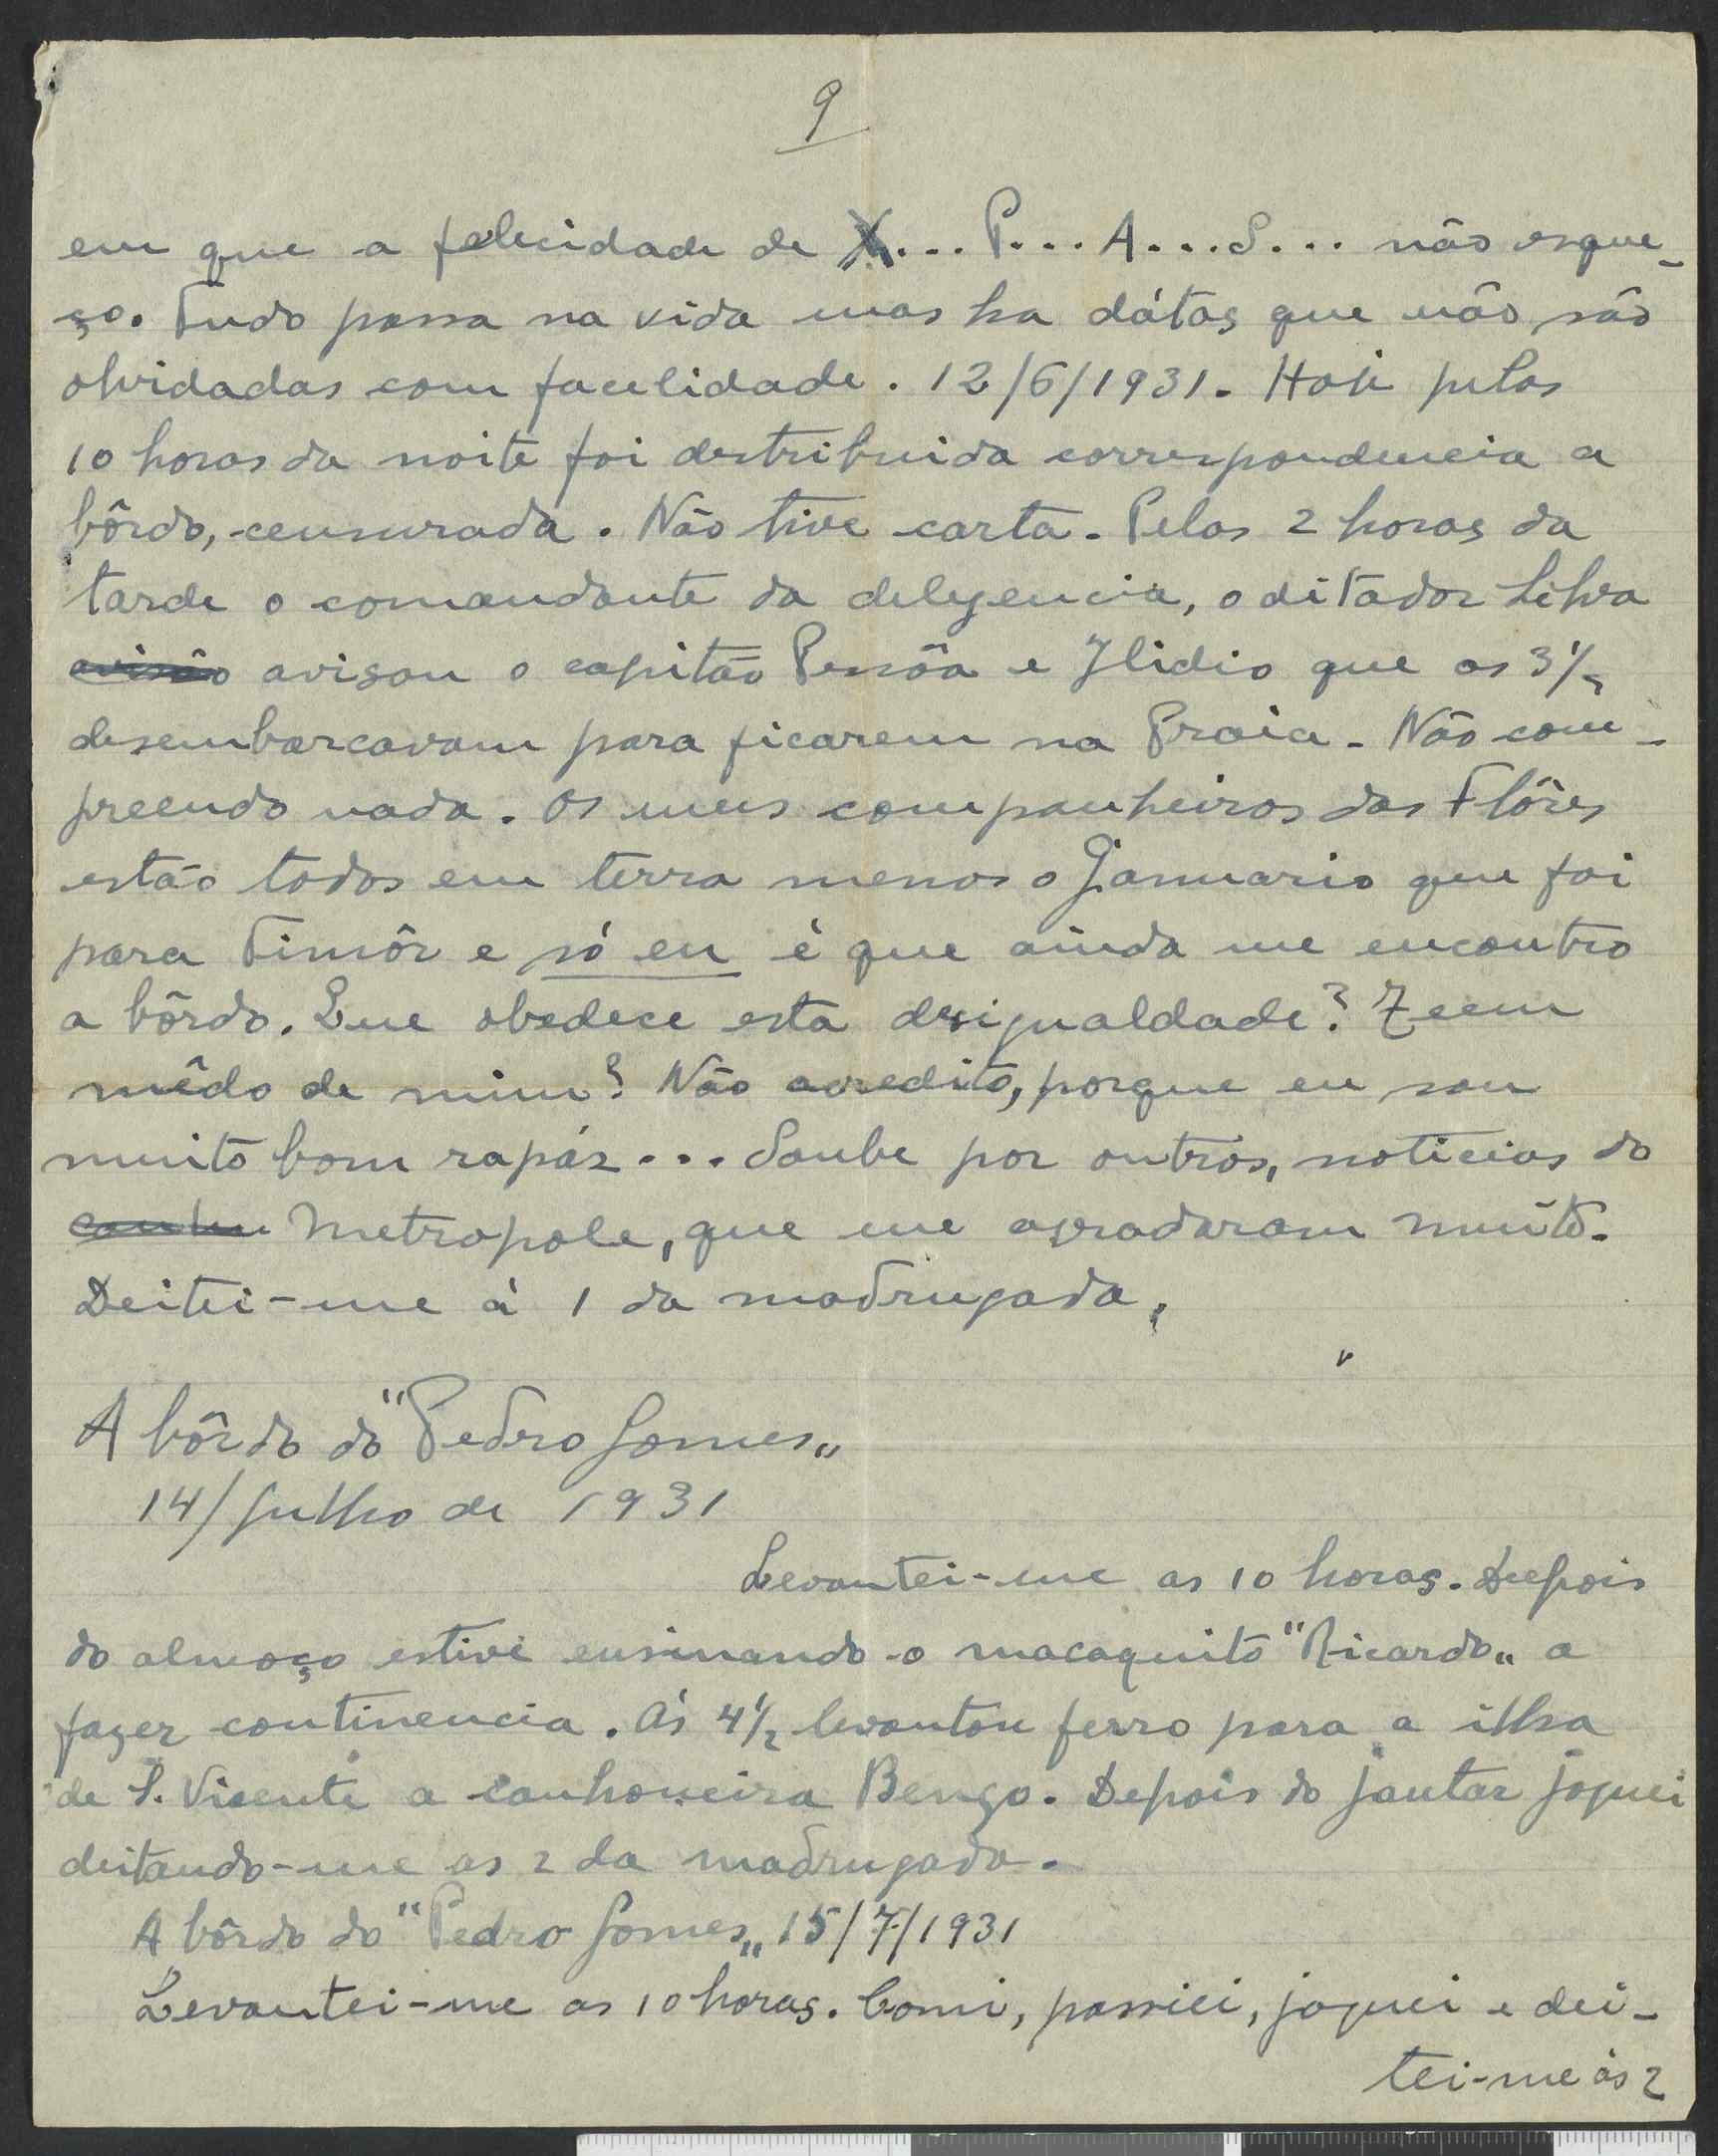 9
em que a felecidade de X... P... A... S... não esque-
ço. Tudo passa na vida mas ha dátas que não são
olvidadas com facelidade. 12/6/1931. Hoje pelas
10 horas da noite foi destribuida correspondencia a
bôrdo, censurada. Não tive carta. Pelas 2 horas da
tarde o comandante da delegencia, o ditador Silva
avisão avisou o capitão Pessôa e Ilidio que as 3½
desembarcavam para ficarem na Praia. Não com-
preendo nada. Os meus companheiros das Flôres
estão todos em terra menos o Januario que foi
para Timôr e só eu é que ainda me encontro
a bôrdo. Que obedece esta desigualdade? Teem
mêdo de mim? Não acredito, porque eu sou
muito bom rapáz... Soube por outros, noticias do
Metropole, que me agradaram muito.
Deitei-me á 1 da madrugada.
A bôrdo do "Pedro Gomes"
14/Julho de 1931
Levantei-me as 10 horas. Depois
do almoço estive ensinando o macaquito "Ricardo" a
fazer continencia. Ás 4½ levantou ferro para a ilha
de S. Vicente a canhoneira Bengo. Depois do jantar joguei
deitando-me as 2 da madrugada.
A bôrdo do "Pedro Gomes" 15/7/1931
Levantei-me as 10 horas. Comi, passiei, joguei e dei-
tei-me ás 2